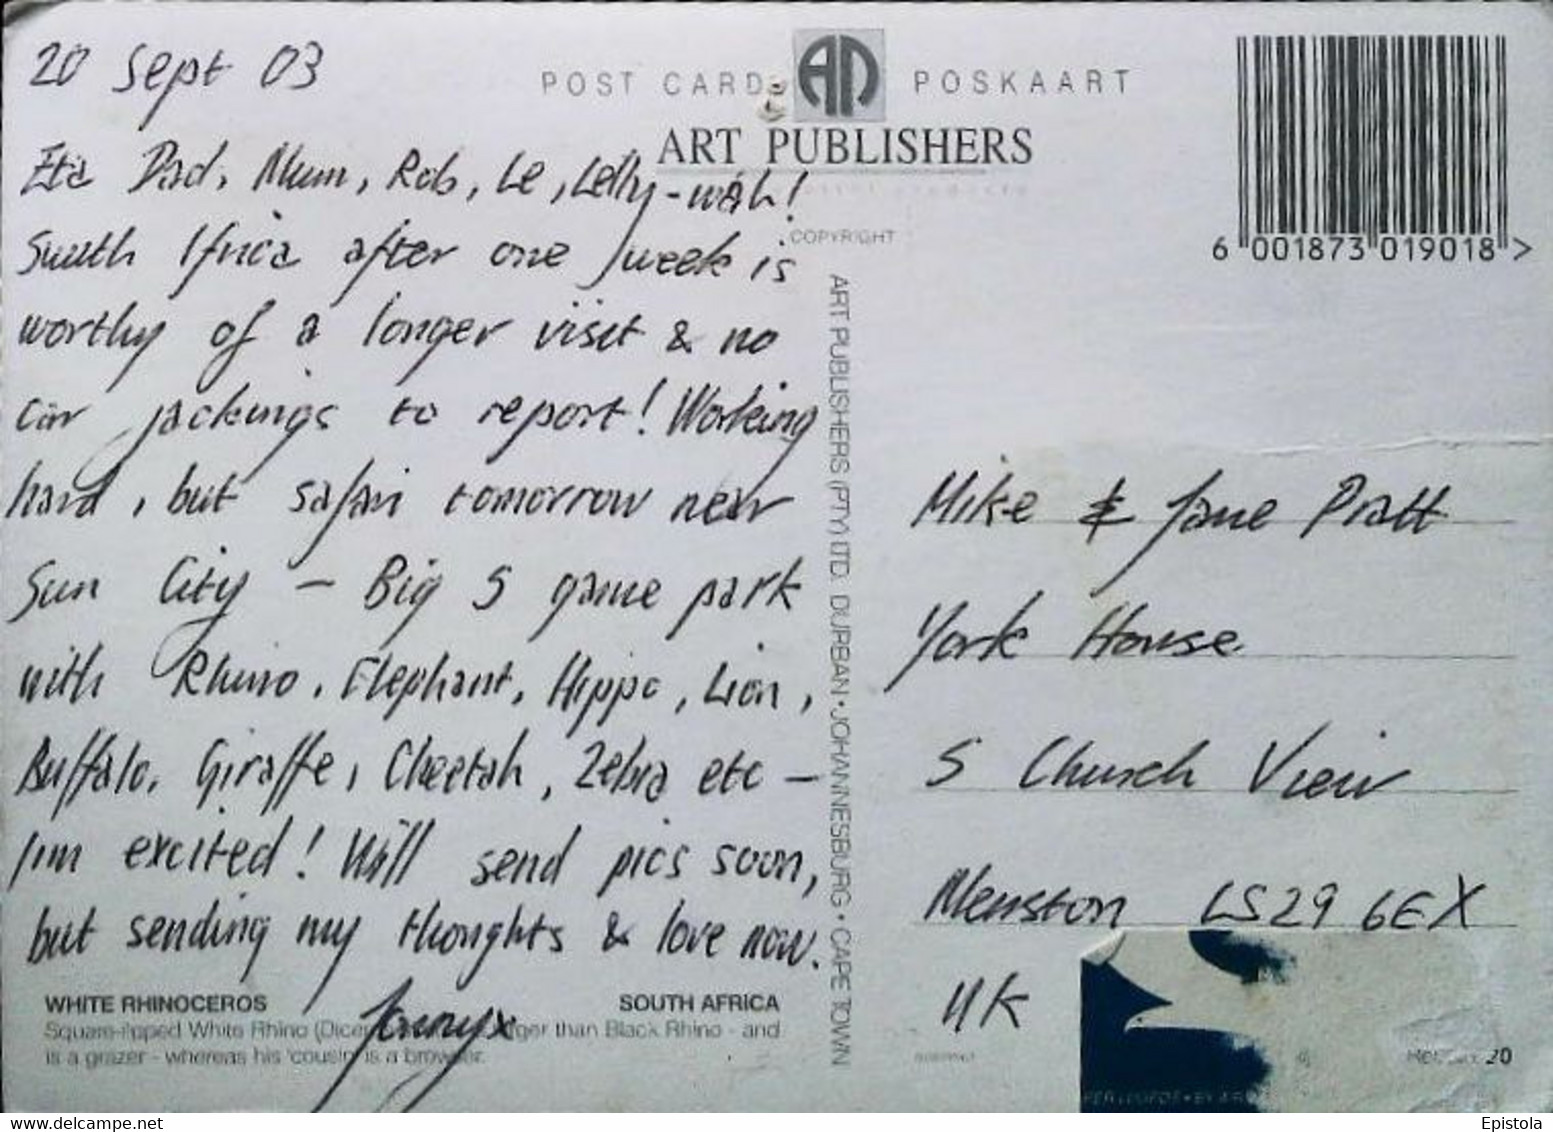 20 Sept 03
POST CARD
POSKAART
ART PUBLISHERS
COPYRIGHT
6 001873 019018 >
Dad, Mum, Rob, Le, Lelly-wah!
South Africa after one week is
worthy of a longer visit & no
car jackings to report! Working
hard, but safari tomorrow near
Sun City – Big 5 game park
with Rhino, Elephant, Hippo, Lion,
Buffalo, Giraffe, Cheetah, Zebra etc –
I'm excited! Will send pics soon,
but sending my thoughts & love now.
Jennyx
WHITE RHINOCEROS
SOUTH AFRICA
Square-lipped White Rhino than Black Rhino - and
is a grazer - whereas his 'cousin' is a browser.
ART PUBLISHERS (PTY) LTD. DURBAN • JOHANNESBURG • CAPE TOWN
Mike & Jane Pratt
York House
5 Church View
Menston LS29 6EX
UK
20
Epistola